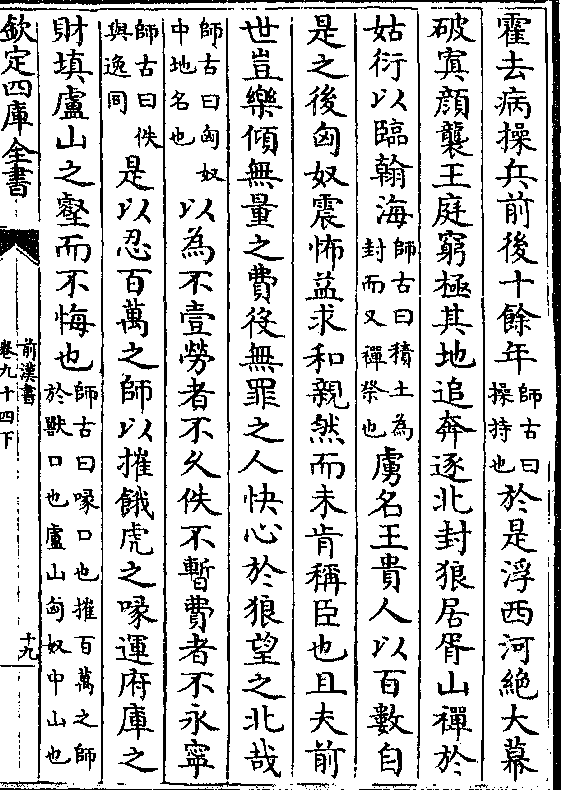 霍去病操兵前後十餘年師古曰操持也於是浮西河絶大幕
破寘顔襲王庭窮極其地追奔逐北封狼居胥山禪於
姑衍以臨翰海師古曰積土為封而又禪祭也虜名王貴人以百數自
是之後匈奴震怖益求和親然而未肯稱臣也且夫前
世豈樂傾無量之費役無罪之人快心於狼望之北哉
師古曰匈奴中地名也以為不壹勞者不久佚不暫費者不永寧
師古曰佚與逸同是以忍百萬之師以摧餓虎之喙運府庫之
財填盧山之壑而不悔也師古曰喙口也摧百萬之師於獸口也盧山匈奴中山也
欽定四庫全書
前漢書
卷九十四下
十九